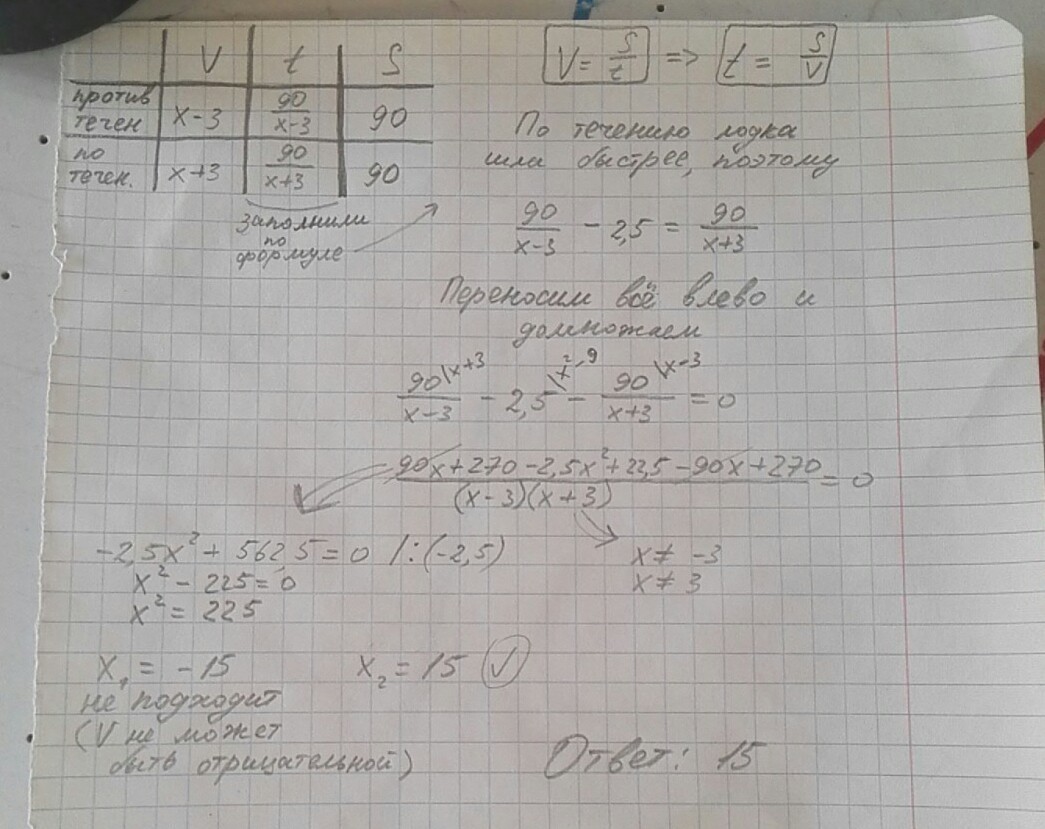 V t S
против течен x-3 90/(x-3) 90
по течен. x+3 90/(x+3) 90
заполнили
по
формуле
V = S/t => t = S/V
По течению лодка
шла быстрее, поэтому
90/(x-3) - 2,5 = 90/(x+3)
Переносим всё влево и
домножаем
90\x+3/(x-3) - 2,5\x²-9 - 90\x-3/(x+3) = 0
(90x+270-2,5x²+22,5-90x+270)/((x-3)(x+3)) = 0
-2,5x² + 562,5 = 0 /:(-2,5)
x² - 225 = 0
x² = 225
x ≠ -3
x ≠ 3
x₁ = -15
не подходит
(V не может
быть отрицательной)
x₂ = 15 ✓
Ответ: 15